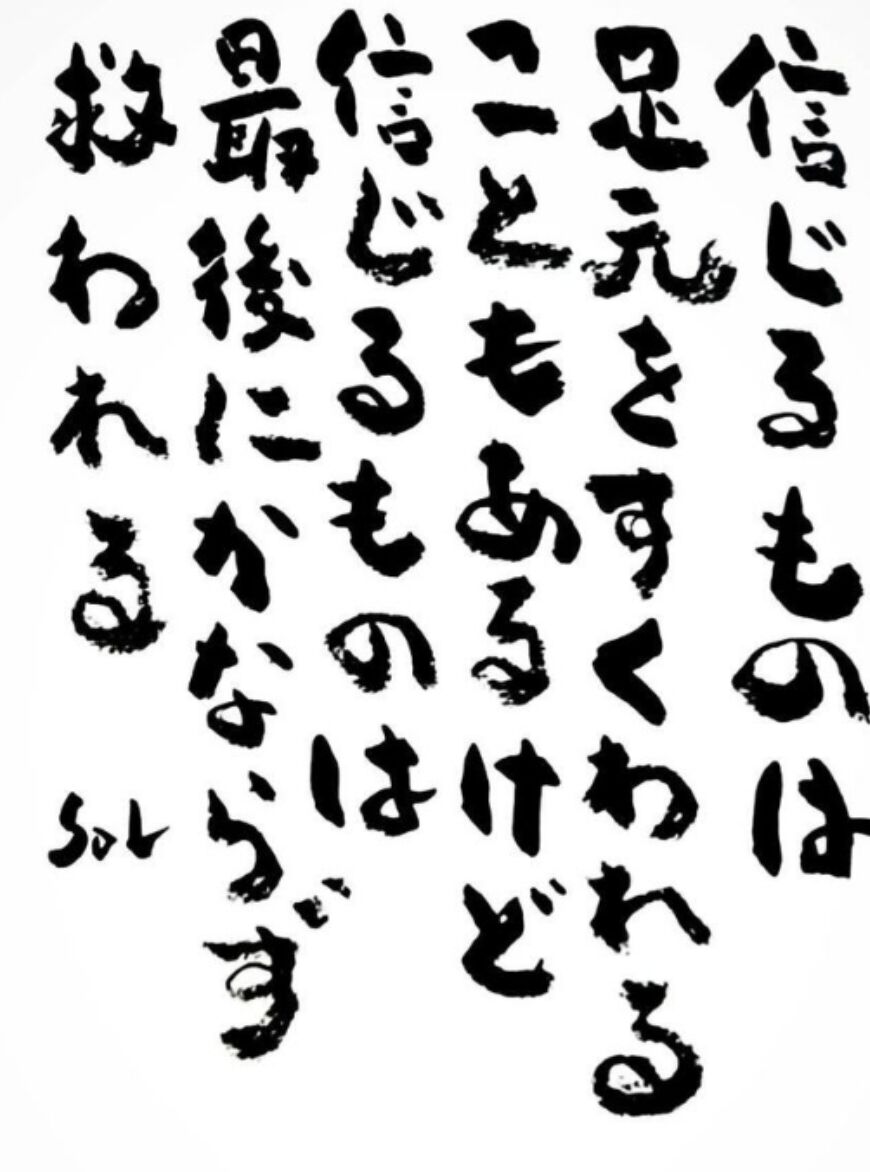 信じるものは
足元をすくわれる
こともあるけど
信じるものは
最後にかならず
救われる
SOL